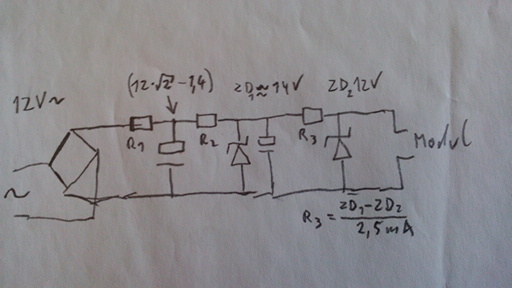 12V~
(12·√2 - 1,4)
ZD₁≈14V
ZD₂12V
R1
R2
R3
Modul
~
R3 = ZD₁-ZD₂ / 2,5mA